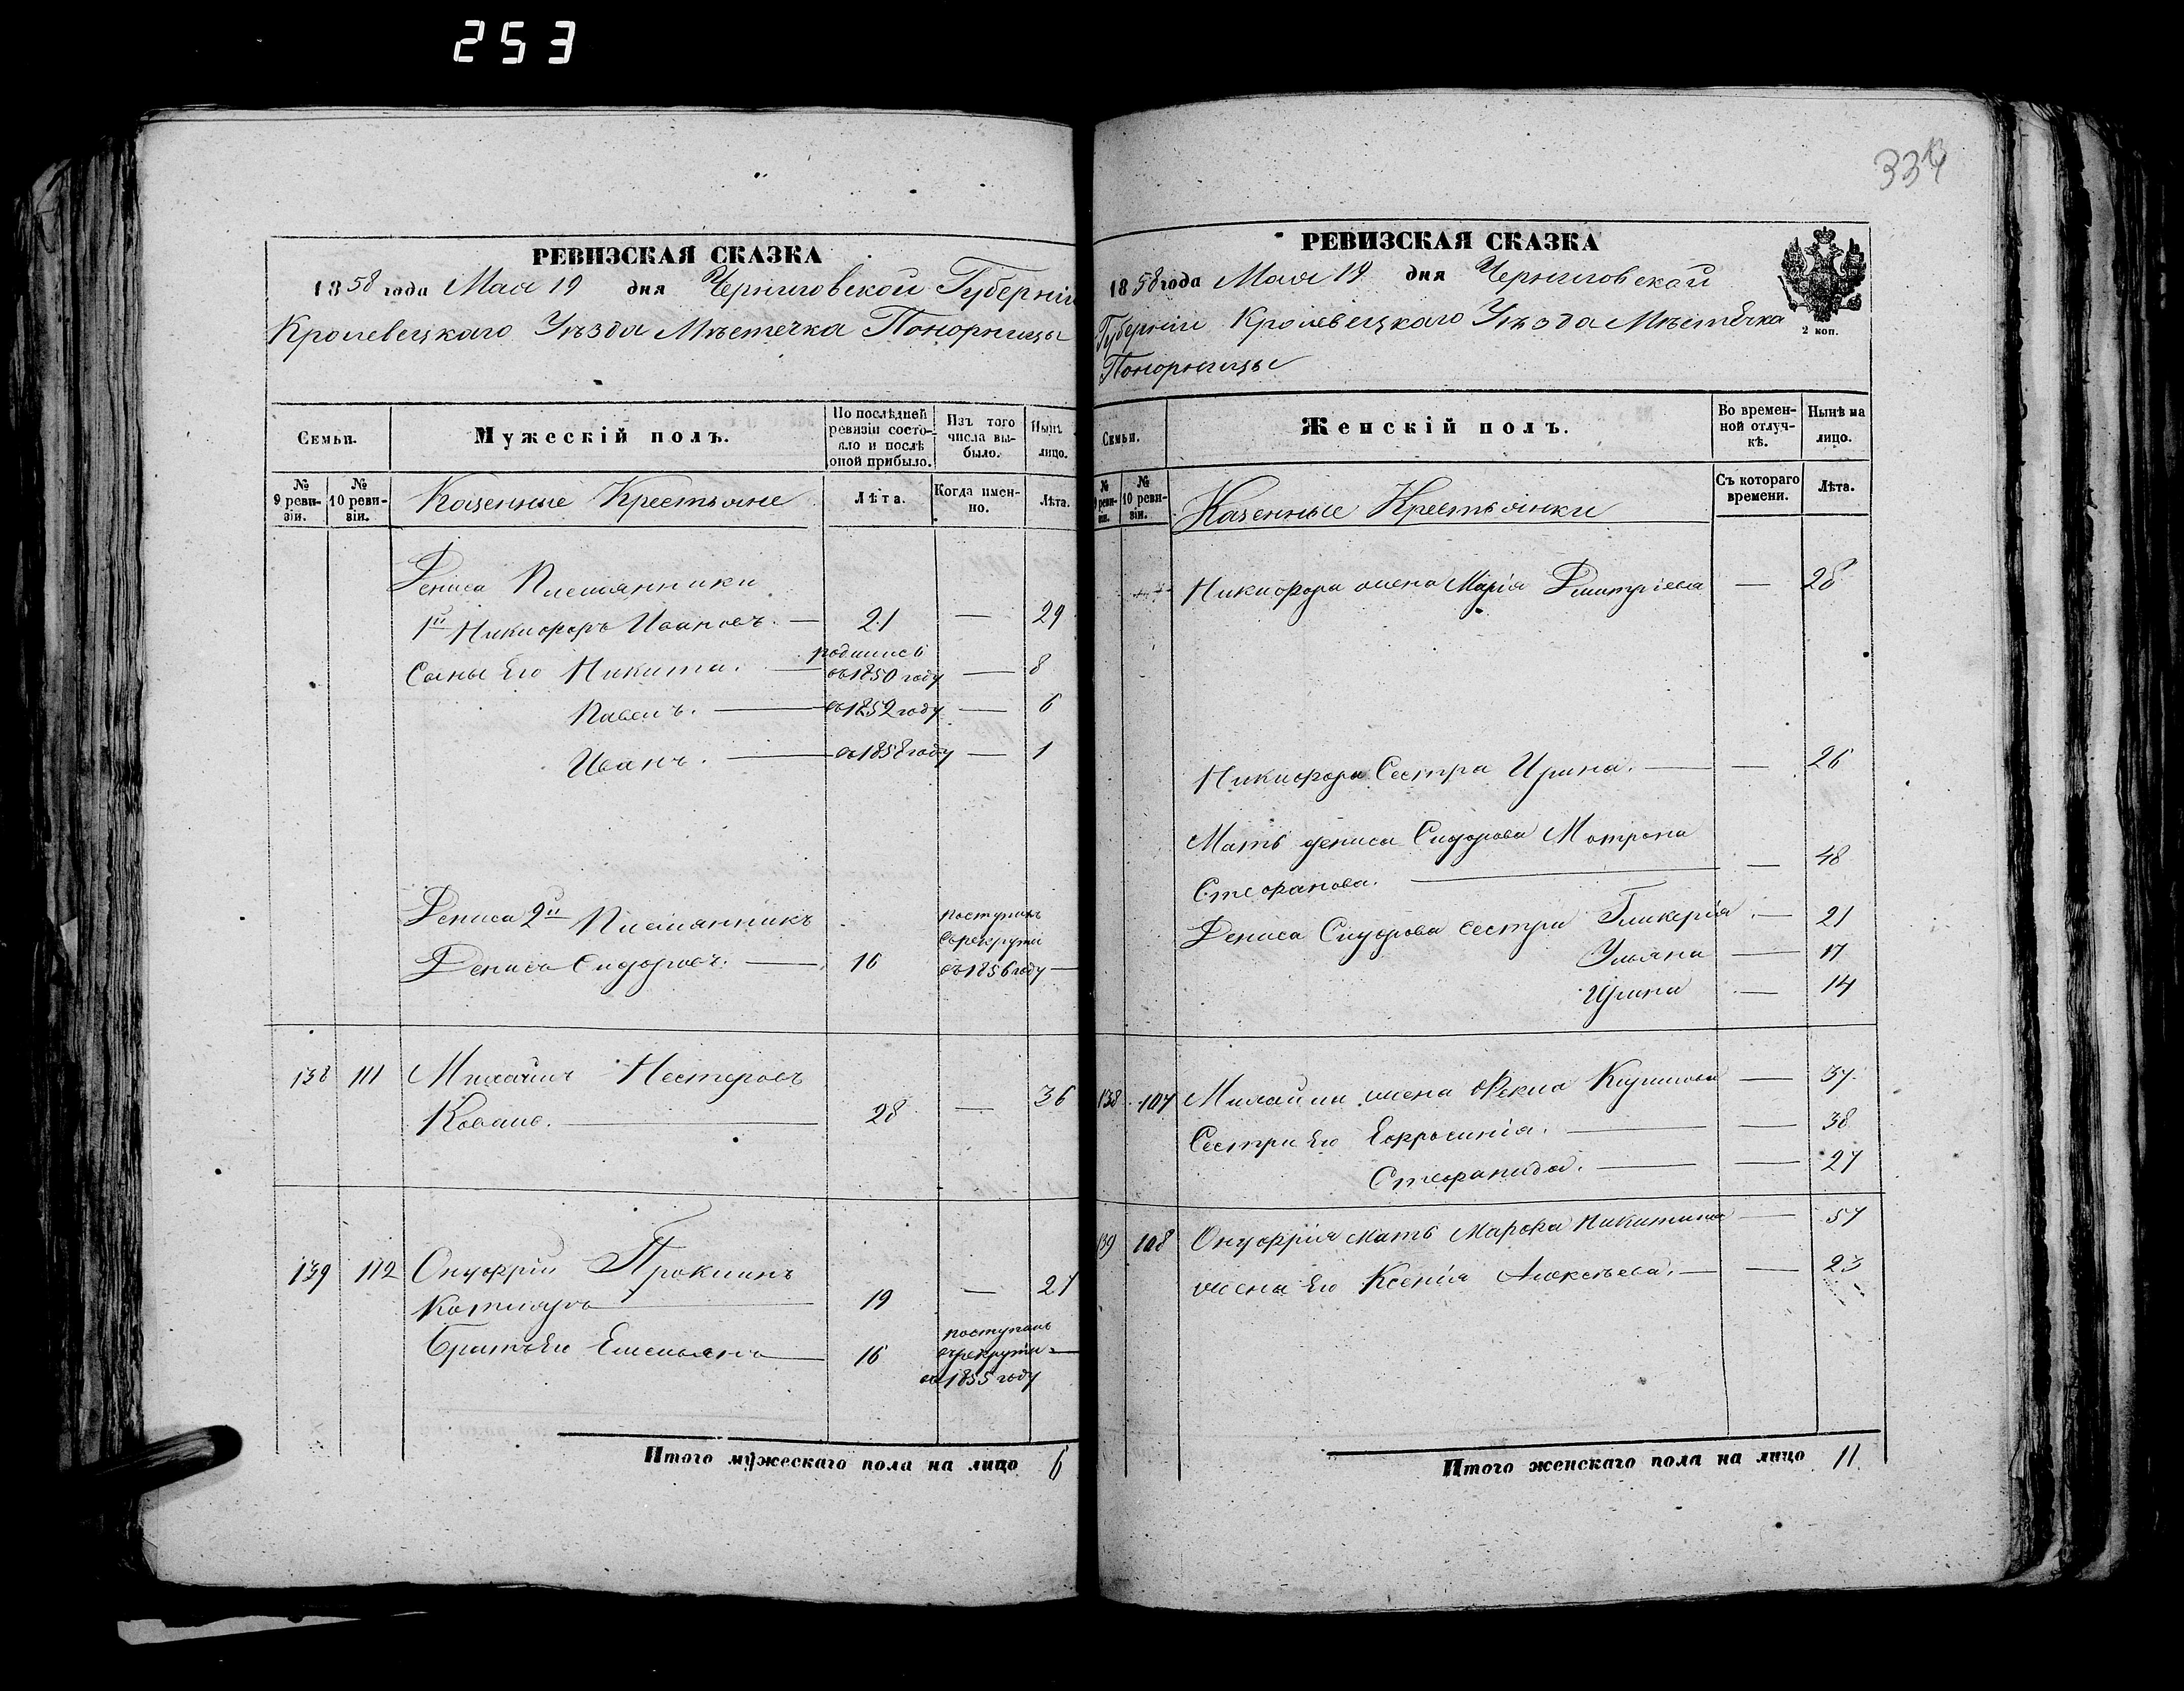 253
333
РЕВИЗСКАЯ СКАЗКА
1858 года Мая 19 дня Черниговской Губерніи
Кролевецкаго Уѣзда Мѣстечка Понорницы
Семьи.
Мужескій полъ.
По послѣдней ревизіи состояло и послѣ оной прибыло.
Изъ того числа выбыло.
Нынѣ лицо.
№ 9 ревизіи.
№ 10 ревизіи.
Казенные Крестьяне
Лѣта.
Когда именно.
Лѣта.
Дениса Племянники
1й Никифоръ Ивановъ. — 21 — 29
Сыны Его Никита. — родились въ 1850 году — 8
Павелъ. — въ 1852 году — 6
Иванъ. — въ 1858 году — 1
Дениса 2й Племянникъ
Денисъ Сидоровъ. — 16 поступилъ въ рекруты въ 1856 году —
138 111 Михайло Нестеровъ
Коваль. — 28 — 36
139 112 Онуфрій Прокпинъ
Котляръ — 19 — 27
Братъ Его Емельянъ — 16 поступилъ въ рекруты въ 1855 году —
Итого мужескаго пола на лицо 6
РЕВИЗСКАЯ СКАЗКА
1858 года Мая 19 дня Черниговской
Губерніи Кролевецкаго Уѣзда Мѣстечка
Понорницы
2 коп.
Семьи.
Женскій полъ.
Во временной отлучкѣ.
Нынѣ на лицо.
№ 9 ревизіи.
№ 10 ревизіи.
Казенные Крестьянки
Съ котораго времени.
Лѣта.
Никифора жена Марія Дмитріева — 28
Никифора Сестра Ирина. — — 26
Мать Дениса Сидорова Мотрона
Стефанова. — — 48
Дениса Сидорова сестры Гликерія. — 21
Ульяна — 17
Ирина — 14
138 107 Михайлы жена Фекла Кирилова — 37
Сестры Его Ефросинія. — — 38
Стефанида. — — 27
139 108 Онуфрія мать Марфа Никитина — 57
жена Его Ксенія Алексѣева. — — 23
Итого женскаго пола на лицо 11